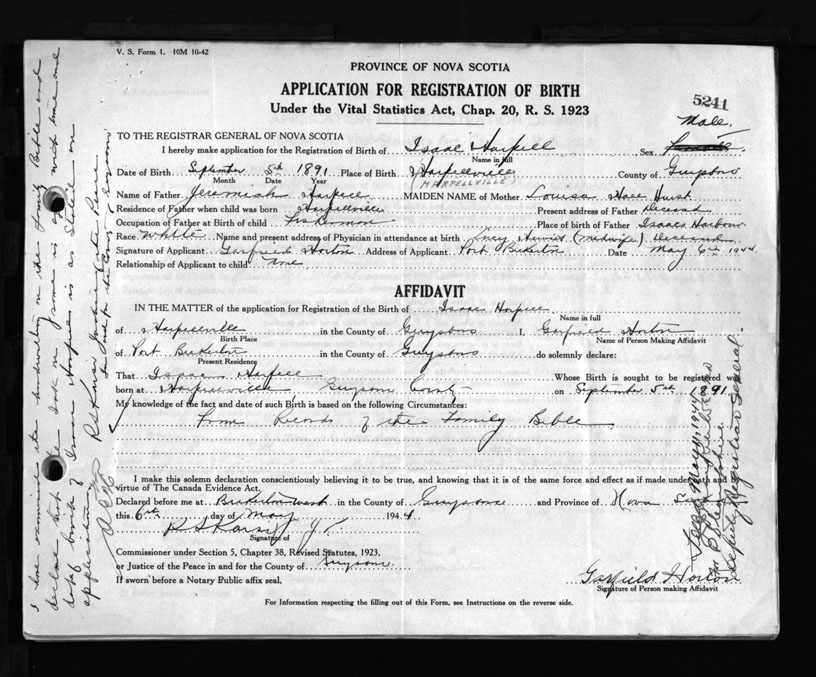 V. S. Form 1. 10M 10-42
PROVINCE OF NOVA SCOTIA
APPLICATION FOR REGISTRATION OF BIRTH
Under the Vital Statistics Act, Chap. 20, R. S. 1923
5241
TO THE REGISTRAR GENERAL OF NOVA SCOTIA
Male.
I hereby make application for the Registration of Birth of Isaac Harpell Sex Female
Name in full
Date of Birth September 5th 1891 Place of Birth Harpellville County of Guysboro
Month Date Year (HARPELLVILLE)
Name of Father Jeremiah Harpell MAIDEN NAME of Mother Louisa Hurst
Residence of Father when child was born Harpellville Present address of Father Deceased
Occupation of Father at Birth of child Fisherman Place of birth of Father Isaacs Harbour
Race White Name and present address of Physician in attendance at birth (midwife) Deceased
Signature of Applicant Garfield Horton Address of Applicant Port Bickerton Date May 6th 1944
Relationship of Applicant to child None
AFFIDAVIT
IN THE MATTER of the application for Registration of the Birth of Isaac Harpell
Name in full
of Harpellville in the County of Guysboro I, Garfield Horton
Birth Place Name of Person Making Affidavit
of Port Bickerton in the County of Guysboro do solemnly declare:
Present Residence
That Isaac Harpell Whose Birth is sought to be registered was
born at Harpellville Guysboro County on September 5th 1891
My knowledge of the fact and date of such Birth is based on the following Circumstances:
From Records of the Family Bible
I make this solemn declaration conscientiously believing it to be true, and knowing that it is of the same force and effect as if made under oath and by
virtue of The Canada Evidence Act.
Declared before me at Bickerton West in the County of Guysboro and Province of Nova Scotia
this 6th day of May 1944
Signature of
Commissioner under Section 5, Chapter 38, Revised Statutes, 1923,
or Justice of the Peace in and for the County of Guysboro
If sworn before a Notary Public affix seal.
Garfield Horton
Signature of Person making Affidavit
For Information respecting the filling out of this Form, see Instructions on the reverse side.
I have examined the handwriting in the Family Bible and
declare that the ink
date of birth of Isaac Harpell is as stated in
application
Justice of the Peace
Deputy Registrar General